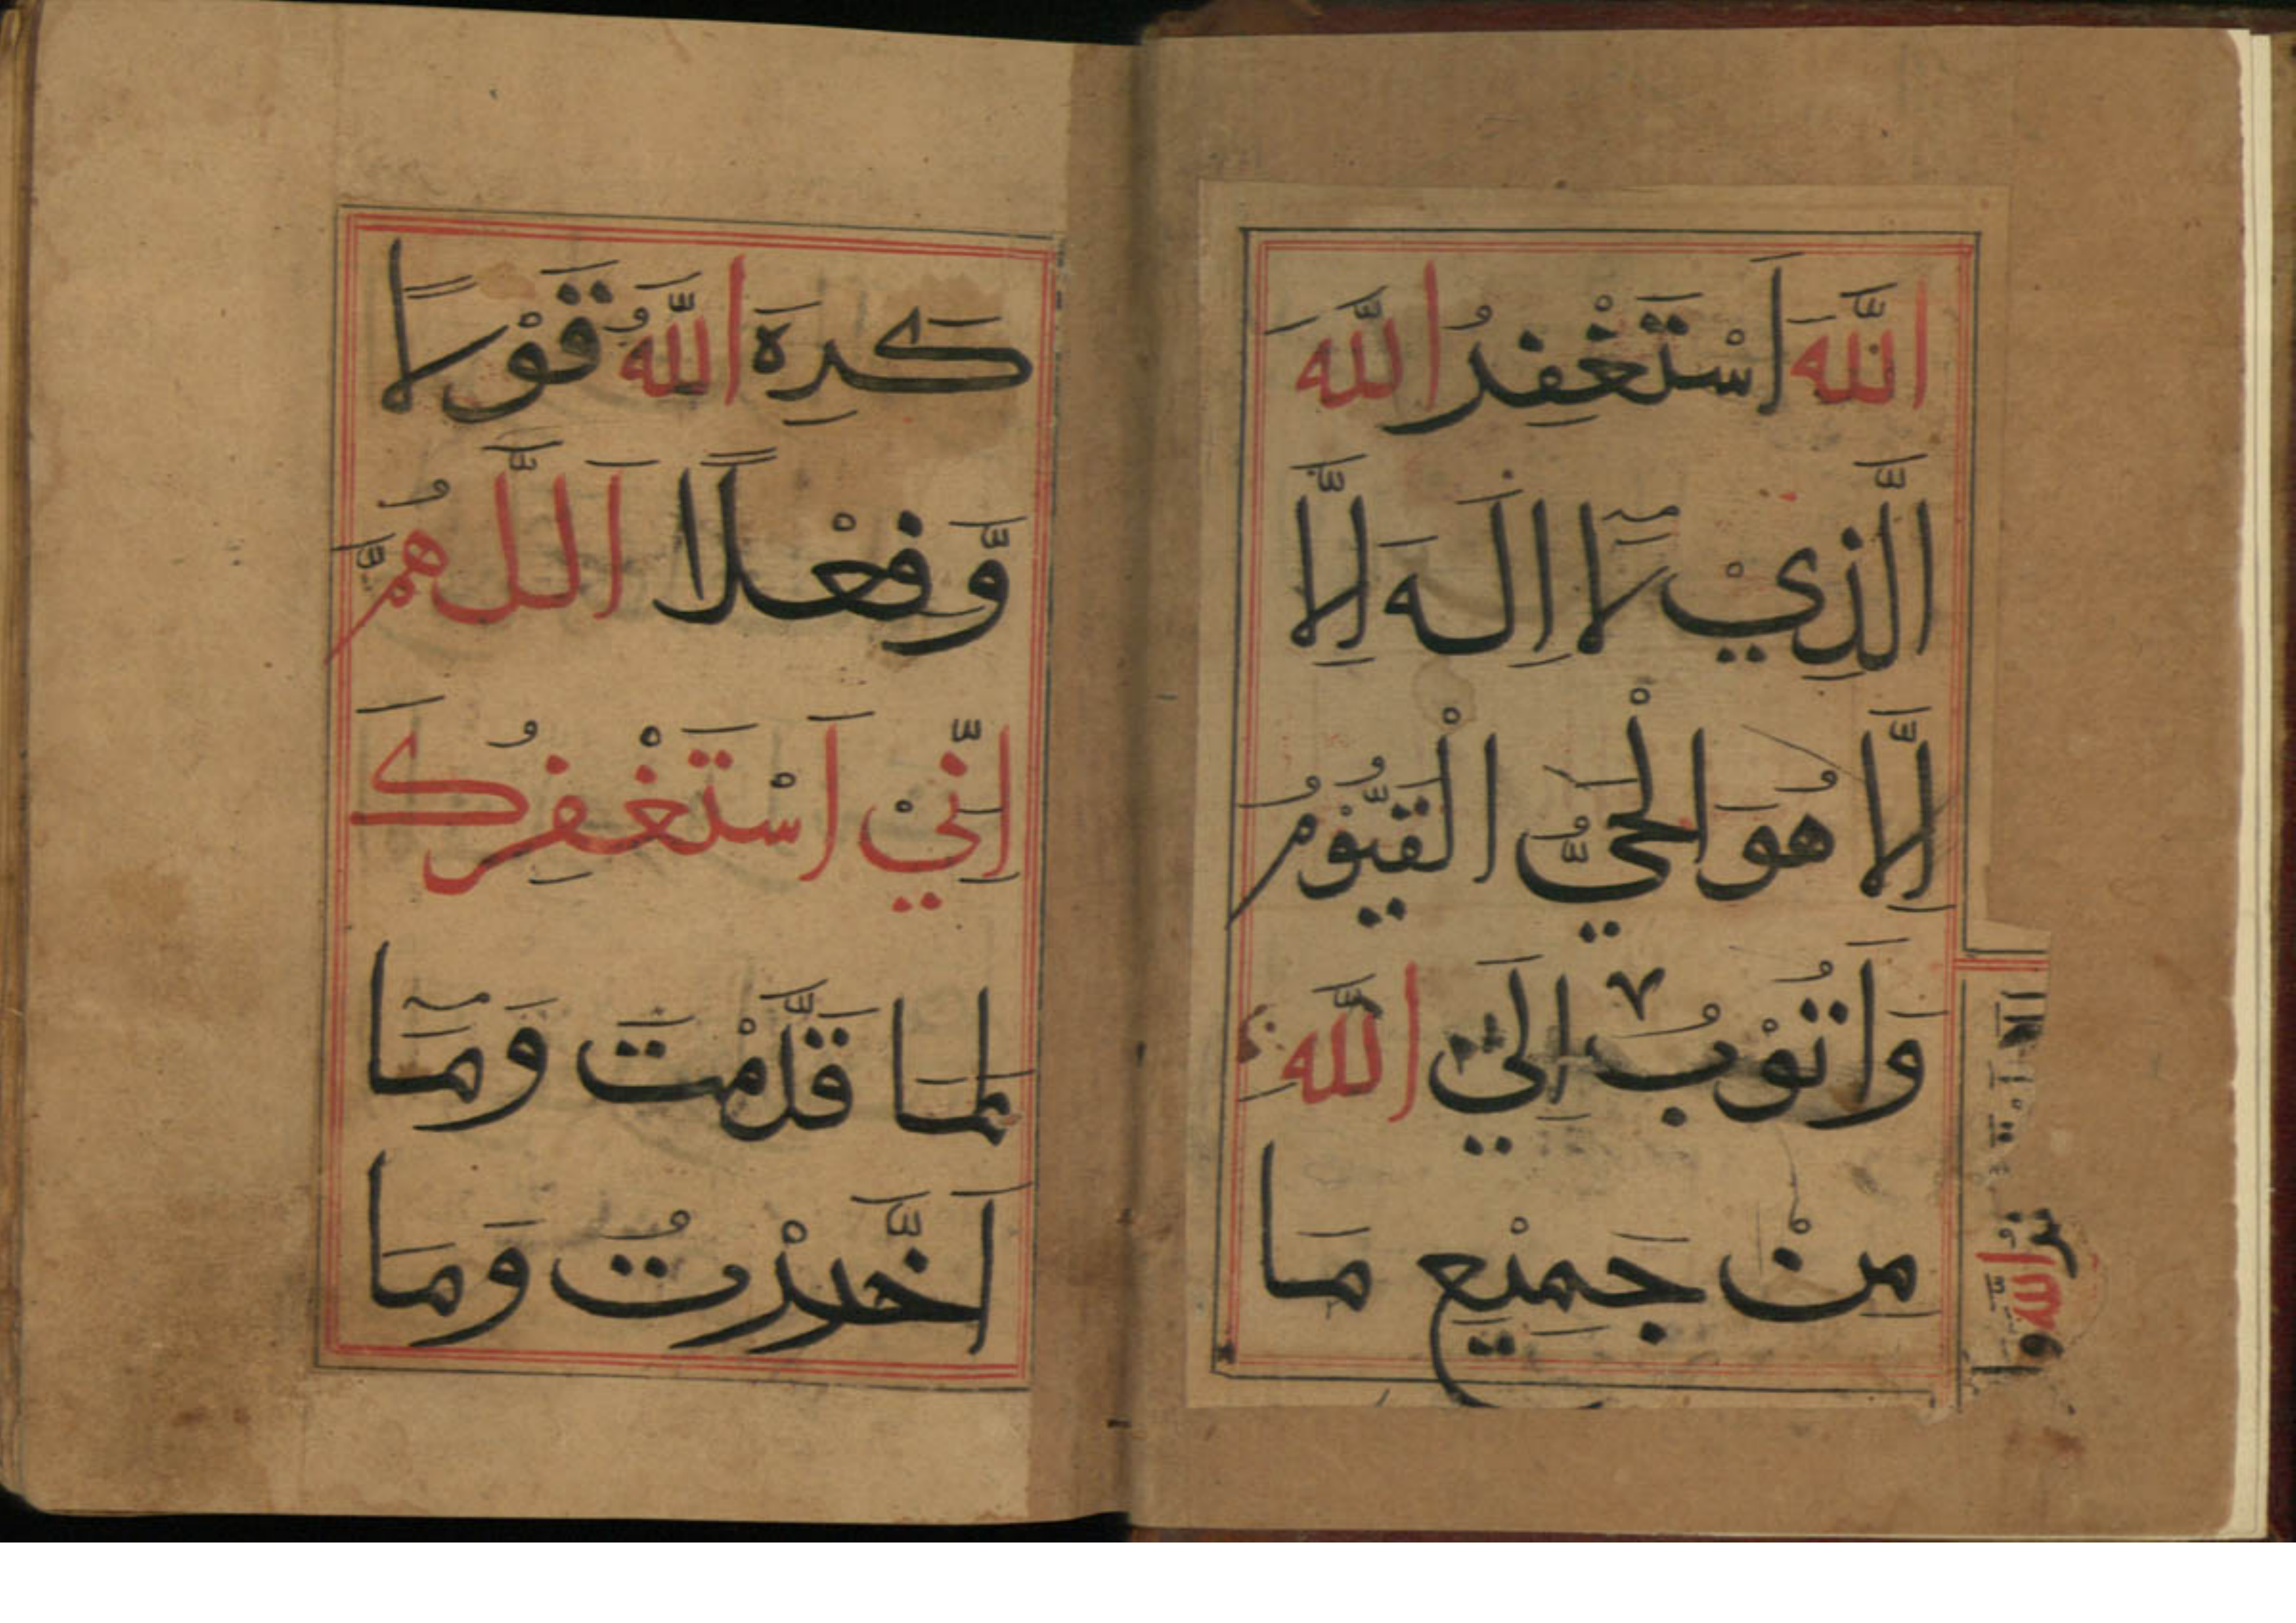 اللَّهَ اَسْتَغْفِرُ اللَّهَ
الَّذِيْ لَآ اِلَهَ اِلَّا
لَّا هُوَ الْحَيُّ الْقَيُّوْمُ
وَاَتُوْبُ اِلَيَّ اللَّهِ
مِنْ جَمِيْعِ مَا
كَرِهَ اللَّهُ قَوْلًا
وَّفِعْلًا اَللَّهُمَّ
اِنِّيْ اَسْتَغْفِرُكَ
لِمَا قَدَّمْتَ وَمَآ
اَخَّرْتُ وَمَا
اللهُ وا